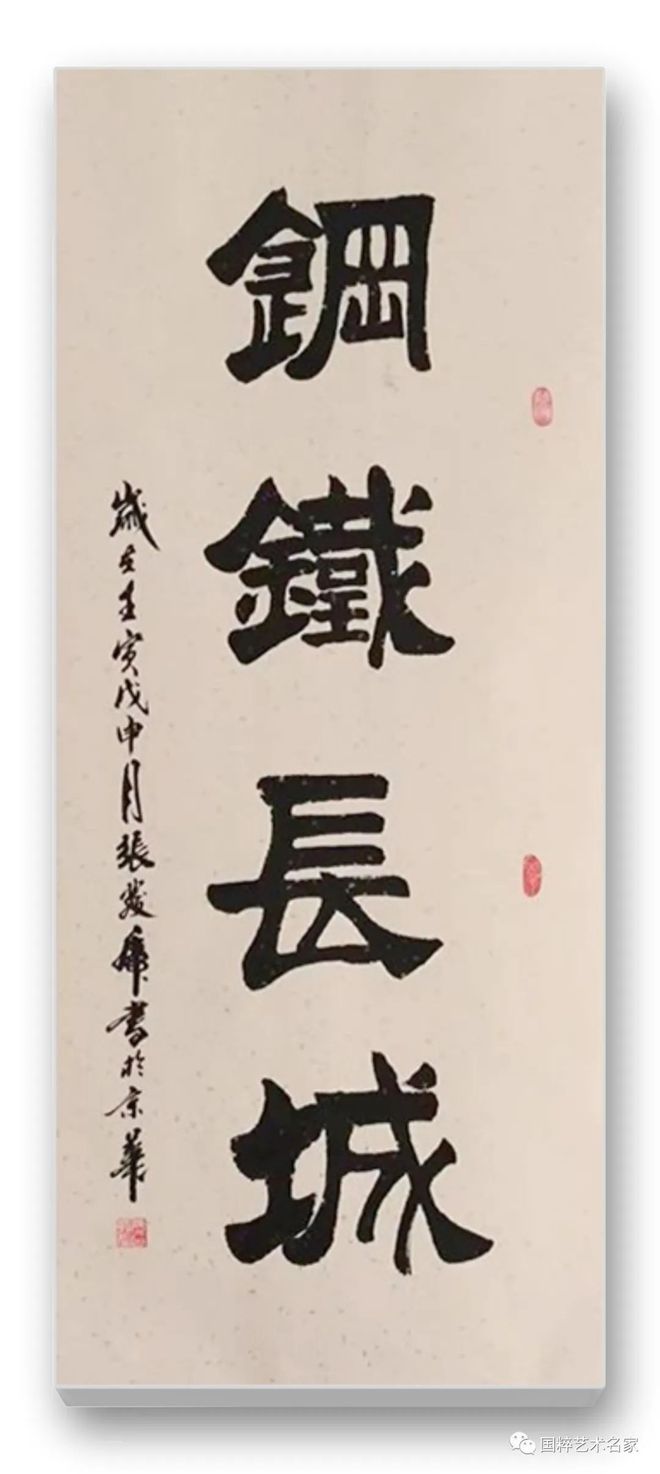 鋼鐵長城
歲在壬寅戊申月張發軍書於京華
国粹艺术名家